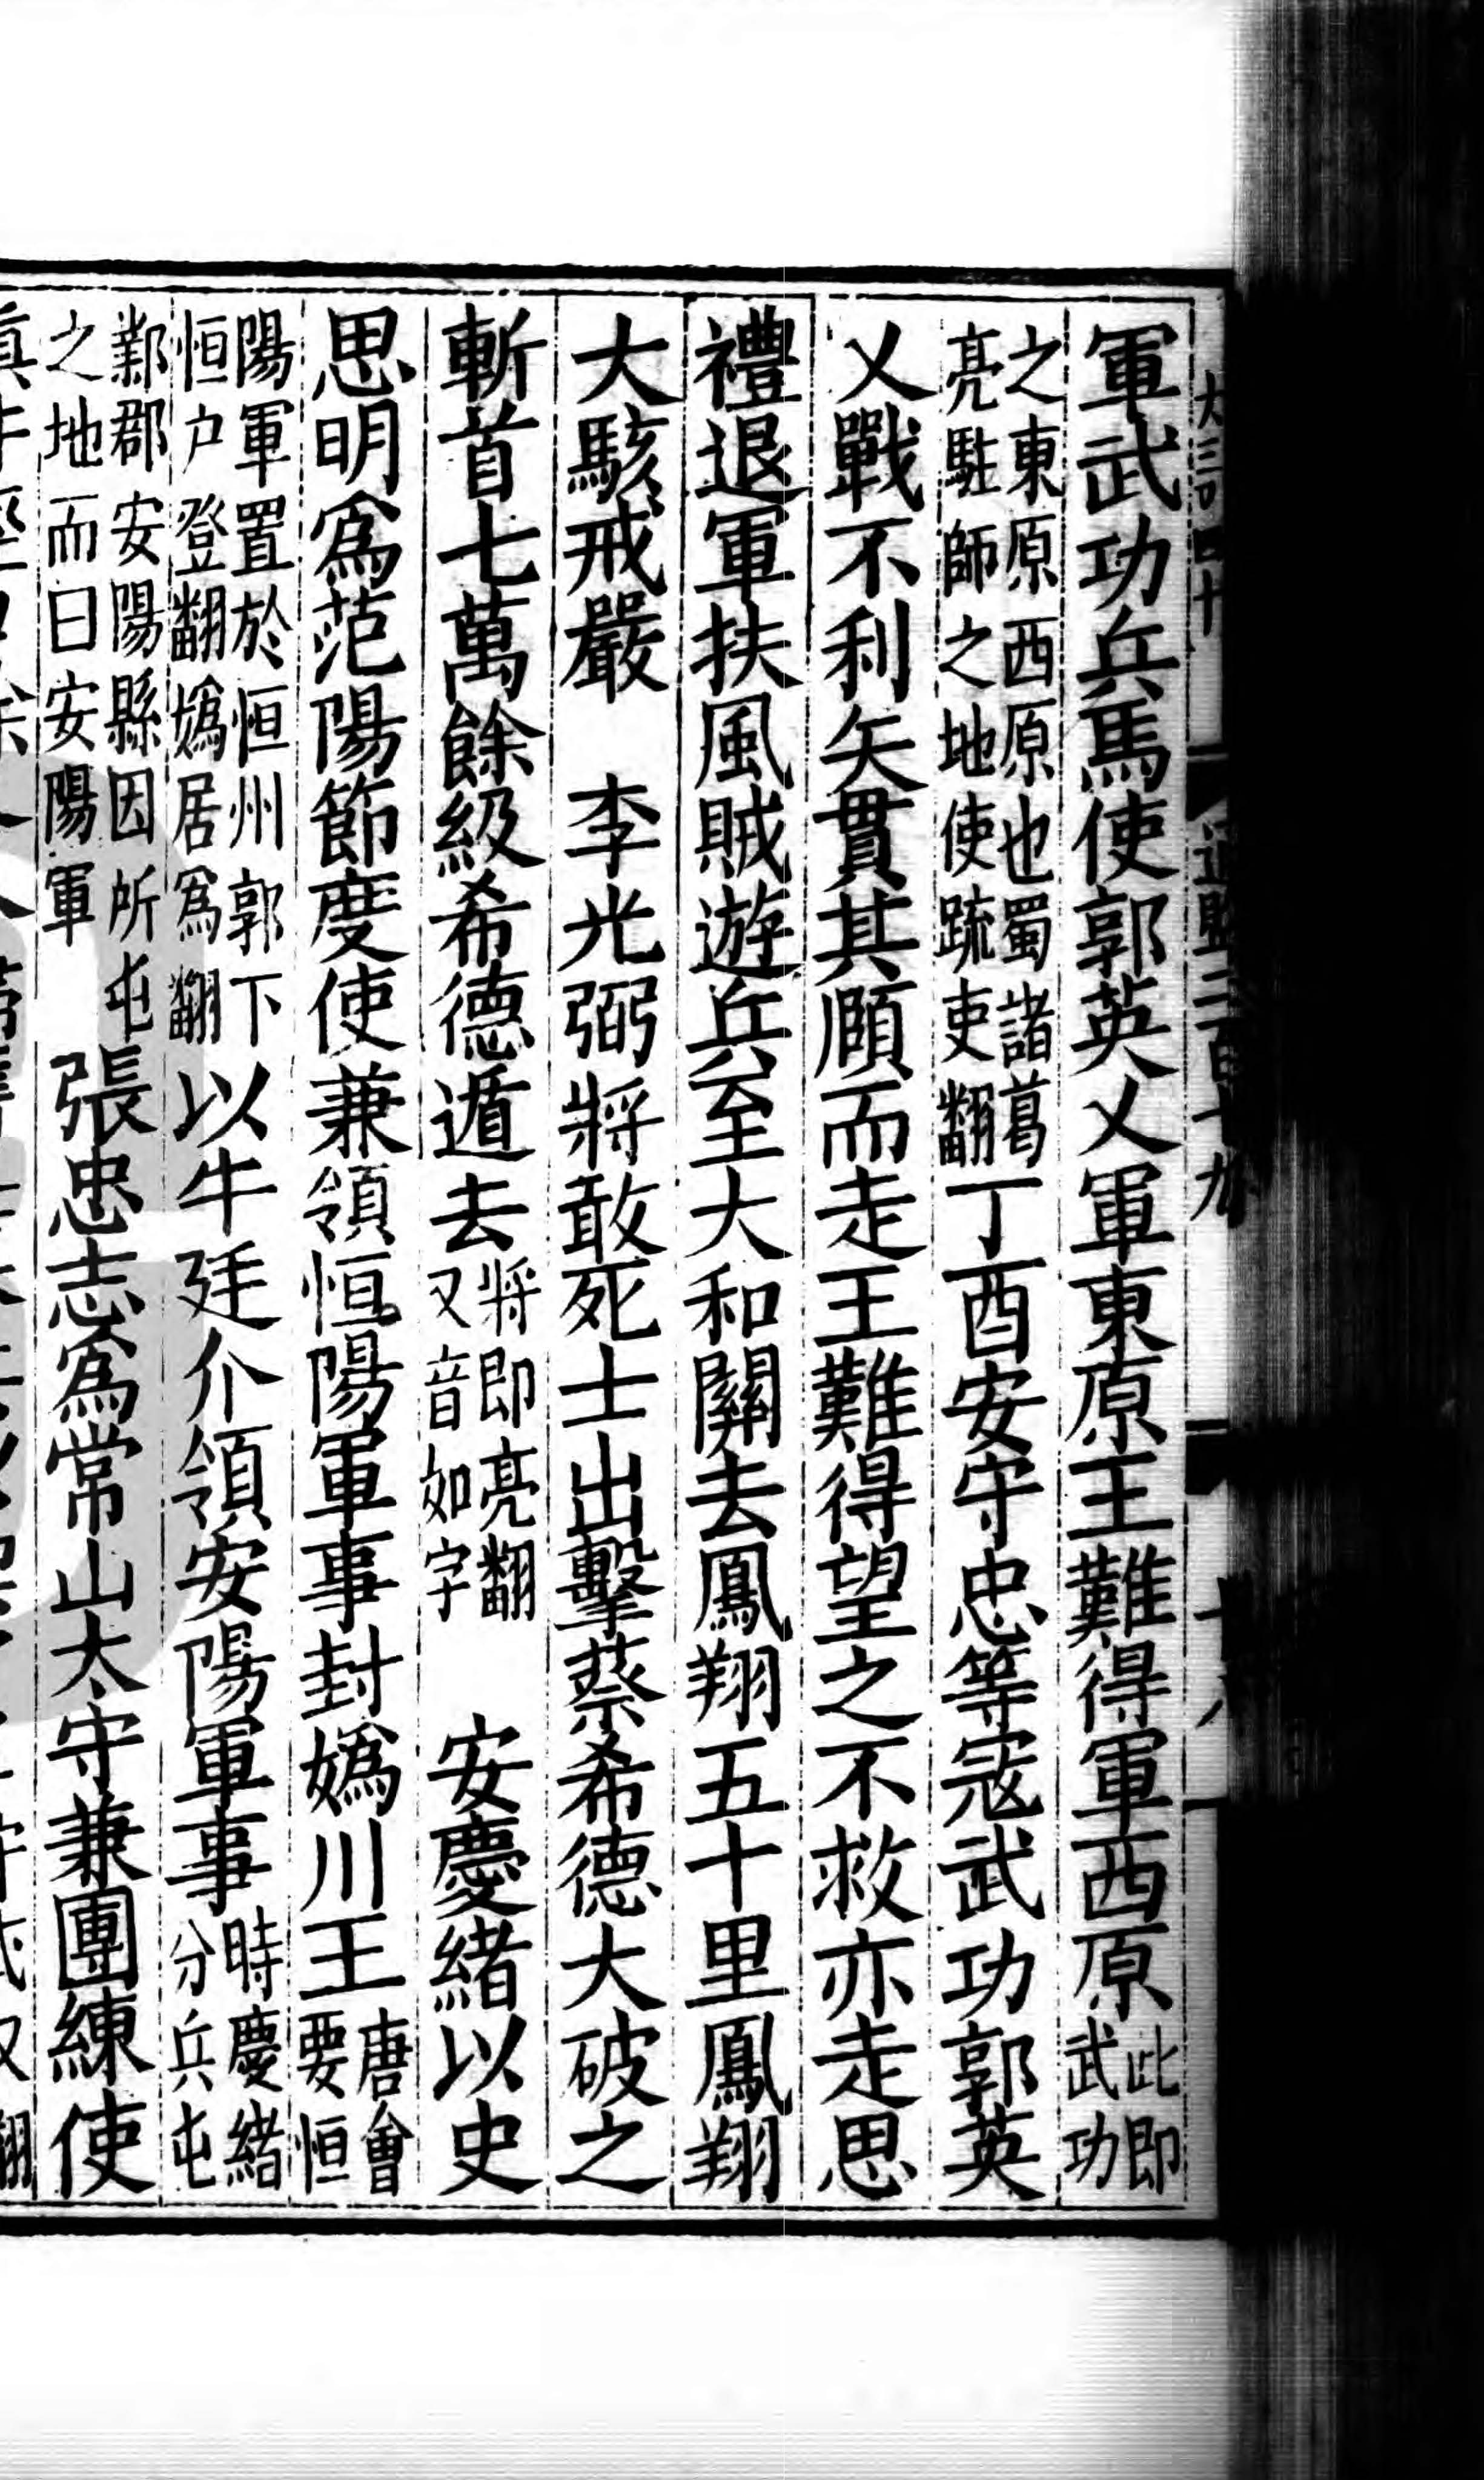 軍武功兵馬使郭英乂軍東原王難得軍西原此即武功
之東原西原也蜀諸葛亮駐師之地使疏吏翻丁酉安守忠等寇武功郭英
乂戰不利矢貫其頤而走王難得望之不救亦走思
禮退軍扶風賊遊兵至大和關去鳳翔五十里鳳翔
大駭戒嚴　李光弼將敢死士出擊蔡希德大破之
斬首七萬餘級希德遁去將即亮翻又音如字　安慶緒以史
思明爲范陽節度使兼領恒陽軍事封嬀川王唐會要恒
陽軍置於恒州郭下恒戶登翻嬀居爲翻以牛廷介領安陽軍事時慶緒分兵屯
鄴郡安陽縣因所屯之地而曰安陽軍張忠志爲常山太守兼團練使